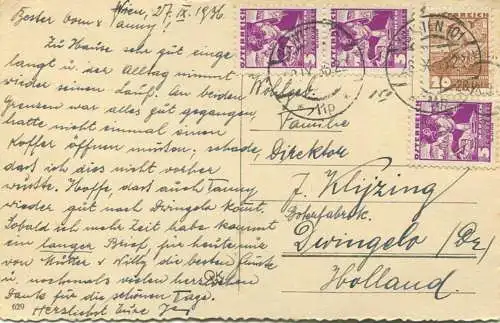 Wien, 27. IX. 1936
Bester Oom &
Fanny!
Zu Hause sehr gut einge
langt u. der Alltag nimmt
wieder seinen Lauf. An beiden
Grenzen war alles gut gegangen,
hatte nicht einmal einen
Koffer öffnen müssen, schade,
dass ich dies nicht vorher
wusste. Hoffe, dass auch Fanny
wieder gut nach Dwingelo kommt.
Sobald ich mehr Zeit habe kommt
ein langer Brief, für heute nur
von Mutter & Willy die besten Grüsse
u. nochmals vielen herzlichen
Dank für die schönen Tage.
Herzlichst Eure
639
ÖSTERREICH
3
ÖSTERREICH
3
ÖSTERREICH
3
WIEN 101
11p
Familie
Direktor
J. Klijzing
Boterfabriek.
Dwingelo (Dr)
Holland.